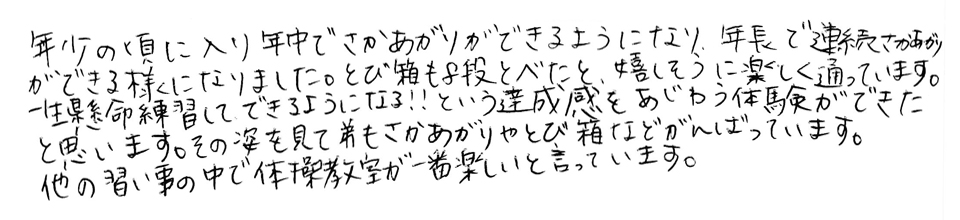 年少の頃に入り年中でさかあがりができるようになり、年長で連続さかあがり
ができる様になりました。とび箱も8段とべたと、嬉しそうに楽しく通っています。
一生懸命練習してできるようになる!!という達成感をあじわう体験ができた
と思います。その姿を見て弟もさかあがりやとび箱などがんばっています。
他の習い事の中で体操教室が一番楽しいと言っています。